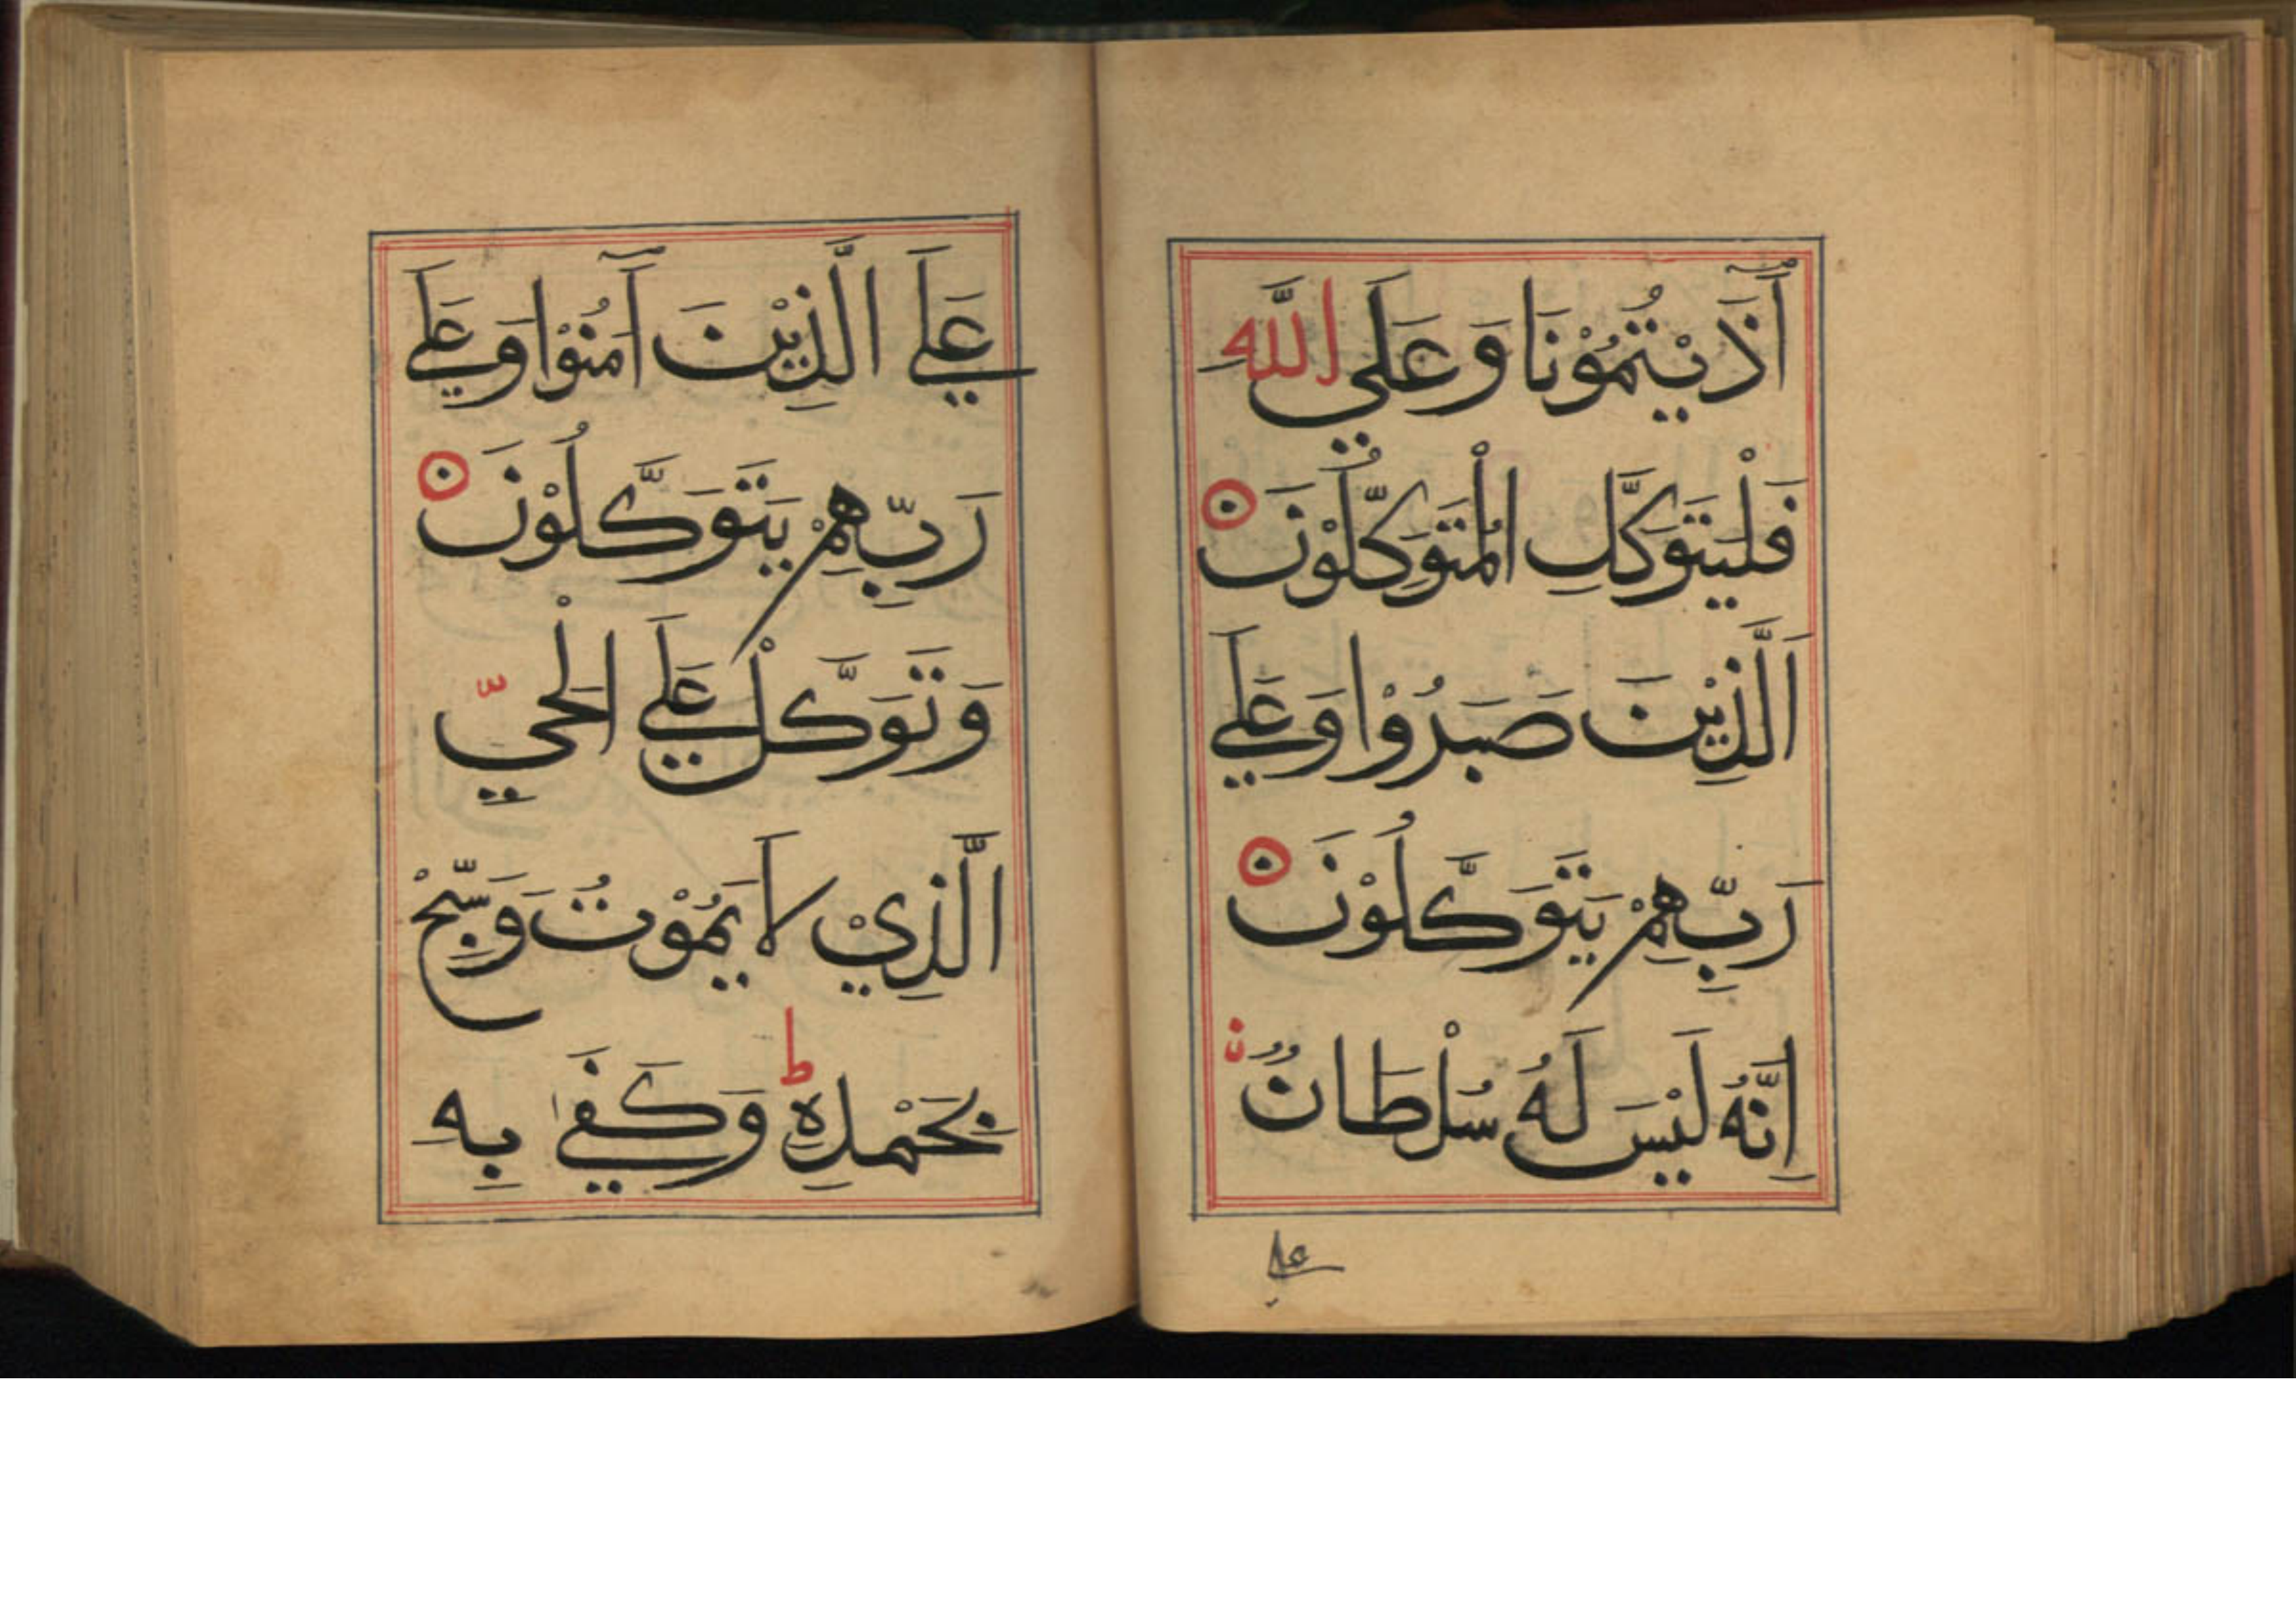 آذَيْتُمُوْنَا وَعَلَي اللّٰهِ
فَلْيَتَوَكَّلِ الْمُتَوَكِّلُوْنَ
اَلَّذِيْنَ صَبَرُوْا وَعَلَي
رَبِّهِمْ يَتَوَكَّلُوْنَ
اِنَّهُ لَيْسَ لَهُ سُلْطَانٌ
علي
عَلَي الَّذِيْنَ آمَنُوْا وَعَلَي
رَبِّهِمْ يَتَوَكَّلُوْنَ
وَتَوَكَّلْ عَلَي الْحَيِّ
الَّذِيْ لَا يَمُوْتُ وَسَبِّحْ
بِحَمْدِهِ ط وَكَفَي بِهِ